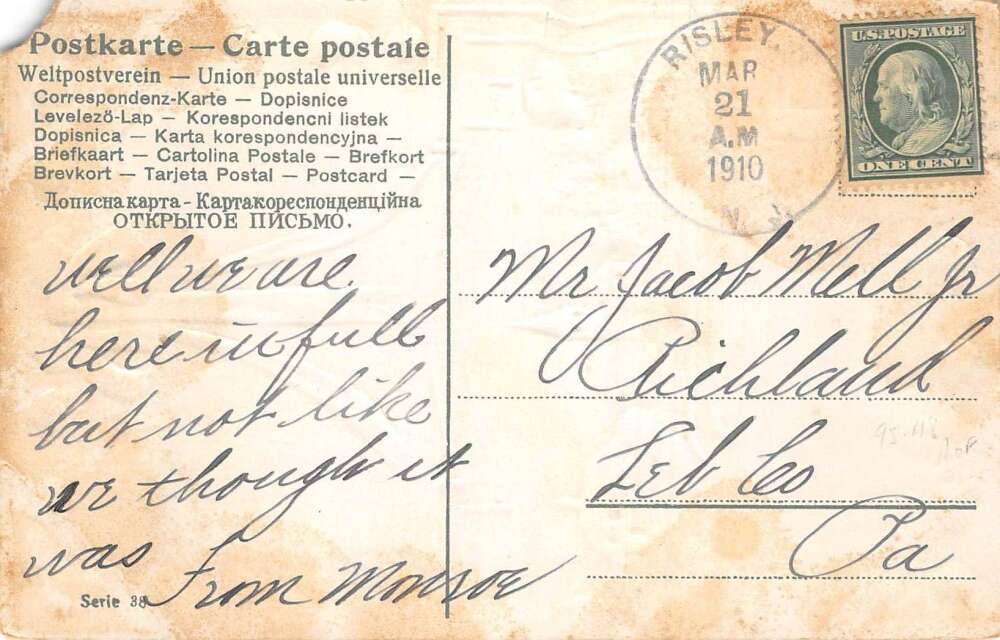 Postkarte — Carte postale
Weltpostverein — Union postale universelle
Correspondenz-Karte — Dopisnice
Levelező-Lap — Korespondencni listek
Dopisnica — Karta korespondencyjna —
Briefkaart — Cartolina Postale — Brefkort
Brevkort — Tarjeta Postal — Postcard —
Дописна карта - Картакореспонденційна
ОТКРЫТОЕ ПИСЬМО.
well we are
here in full
but not like
we though it
was From Monroe
Serie 38
RISLEY.
MAR
21
A.M
1910
N. J.
U.S. POSTAGE
ONE CENT
Mr Jacob Mell Jr
Richland
Leb Co
Pa